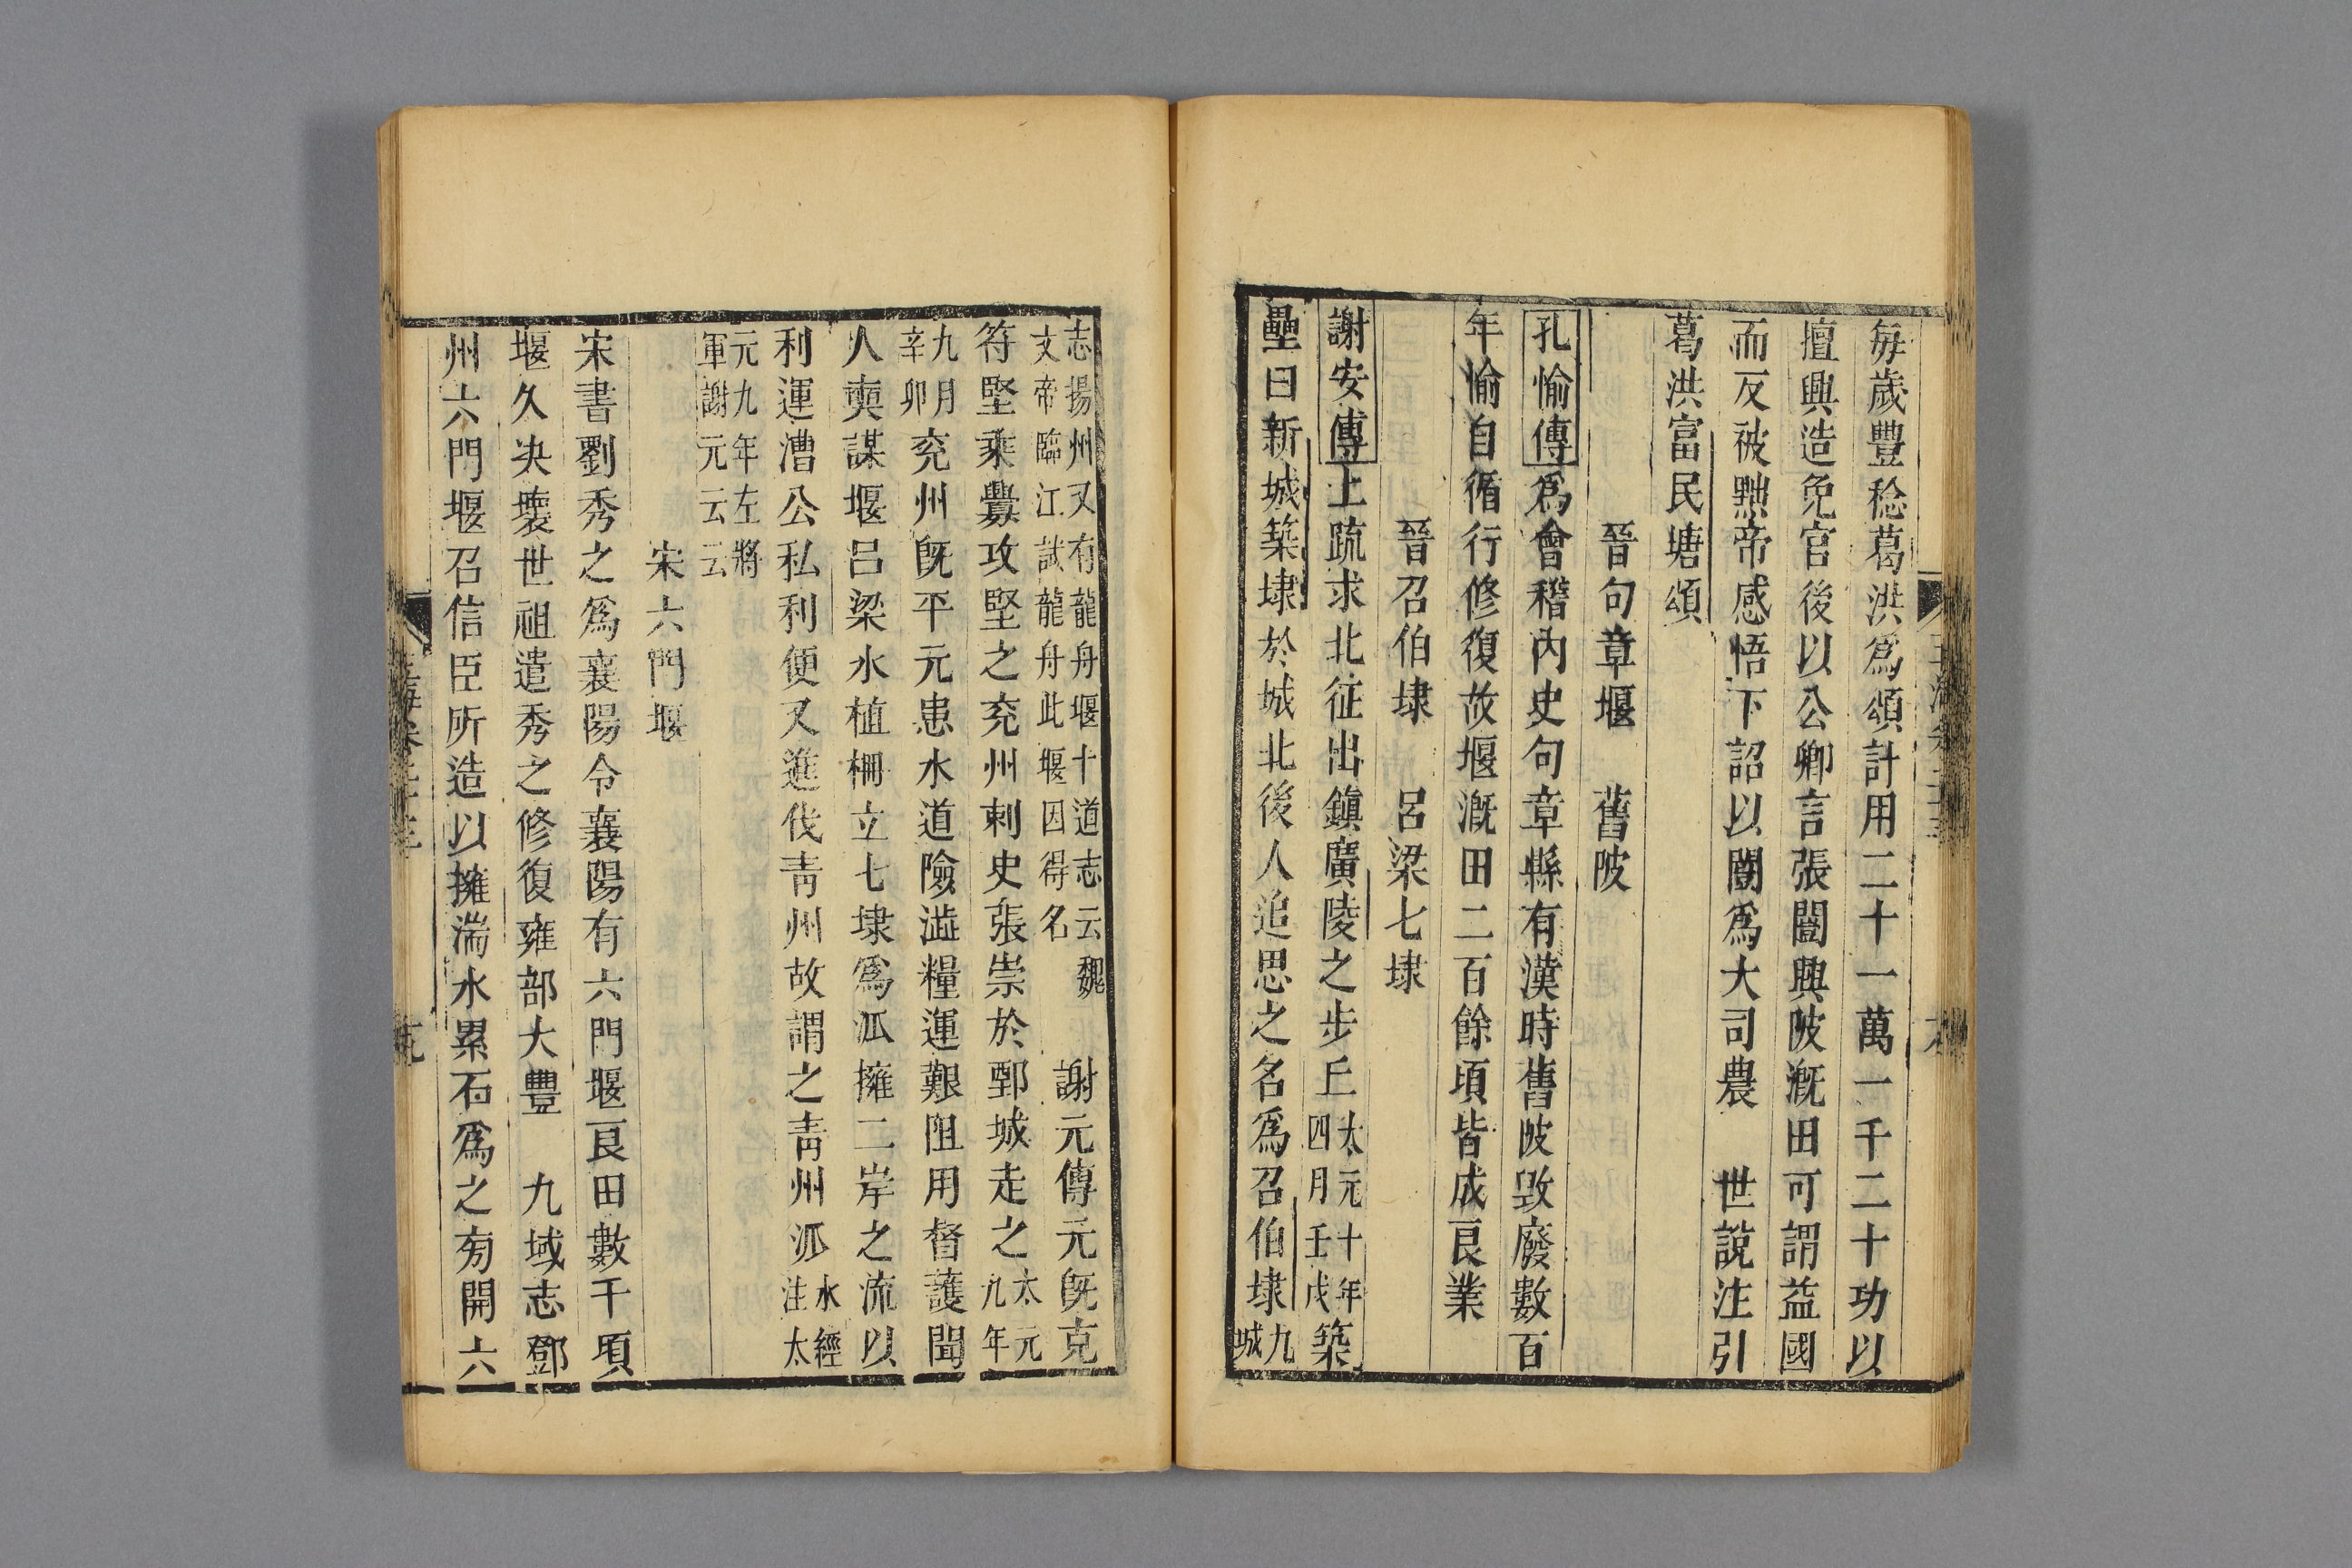 每歲豐稔葛洪爲頌計用二十一萬一千二十功以
擅興造免官後以公卿言張闓興陂漑田可謂益國
而反被黜帝感悟下詔以闓爲大司農　世說注引
葛洪富民塘頌
晉句章堰　舊陂
孔愉傳爲會稽內史句章縣有漢時舊陂毀廢數百
年愉自循行修復故堰漑田二百餘頃皆成良業
晉召伯埭　呂梁七埭
謝安傳上疏求北征出鎮廣陵之步丘太元十年四月壬戌築
壘曰新城築埭於城北後人追思之名爲召伯埭九域
志揚州又有龍舟堰十道志云魏文帝臨江試龍舟此堰因得名　謝元傳元旣克
符堅乘釁攻堅之兖州刺史張崇於鄄城走之太元九年
九月辛卯兖州旣平元患水道險澁糧運艱阻用督護聞
人奭謀堰呂梁水植柵立七埭爲泒擁二岸之流以
利運漕公私利便又進伐青州故謂之青州泒水經注太
元九年左將軍謝元云云
宋六門堰
宋書劉秀之爲襄陽令襄陽有六門堰良田數千頃
堰久决壞世祖遣秀之修復雍部大豐　九域志鄧
州六門堰召信臣所造以擁湍水累石爲之旁開六